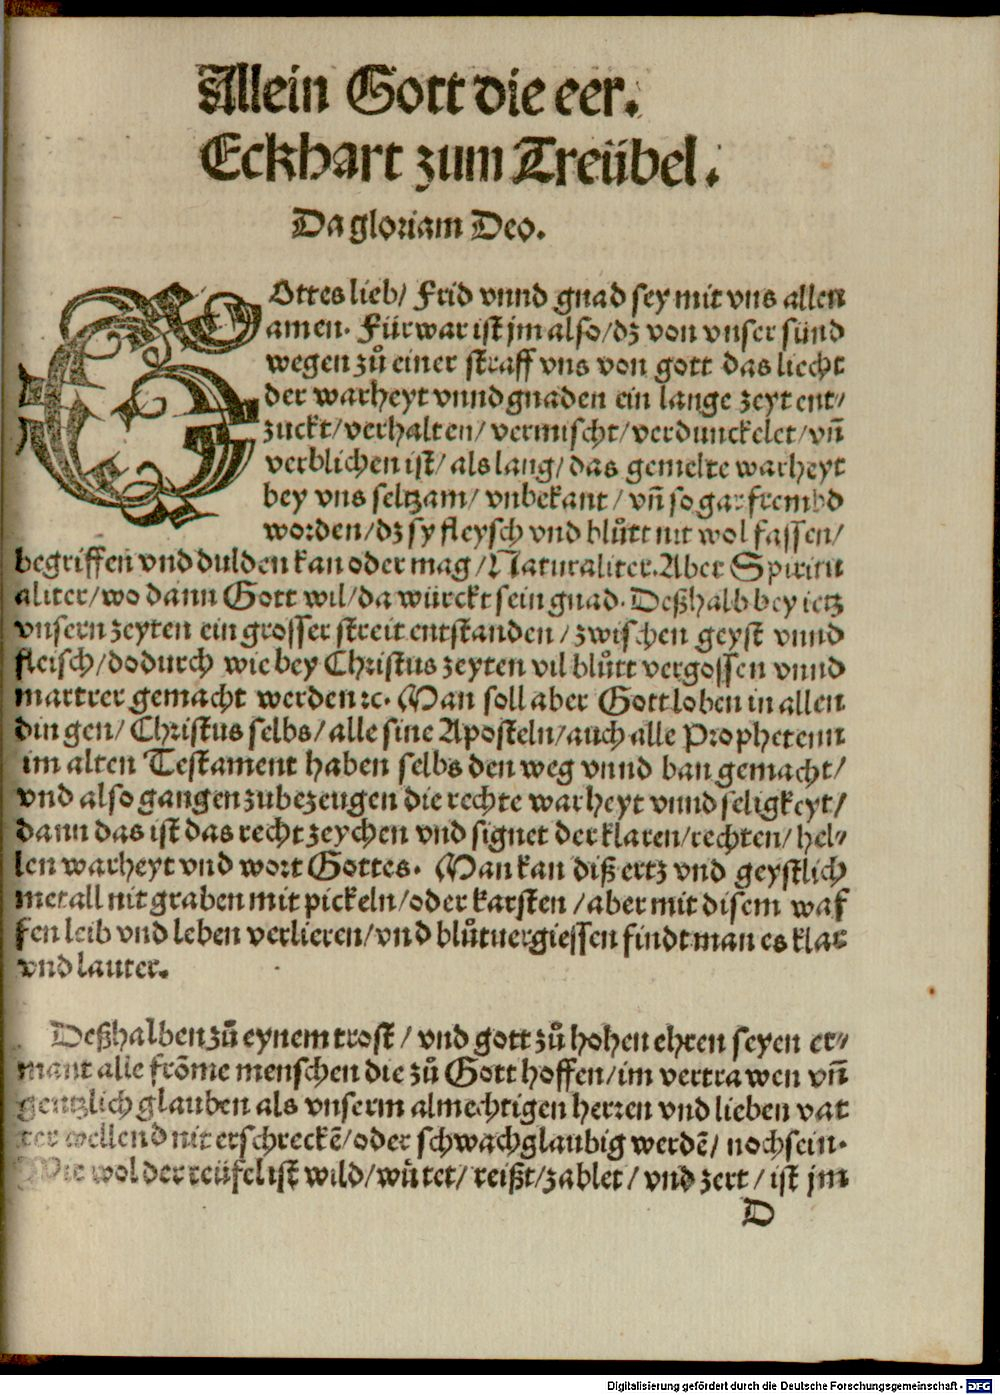 Allein Gott die eer.
Eckhart zum Treübel.
Da gloriam Deo.
GOttes lieb/ Frid vnnd gnad sey mit vns allen
amen. Fürwar ist jm also/dz von vnser sünd
wegen zů einer straff vns von gott das liecht
der warheyt vnnd gnaden ein lange zeyt ent⸗
zuckt/verhalten/ vermischt/verdunckelet/vñ
verblichen ist/ als lang/das gemelte warheyt
bey vns seltzam/ vnbekant/ vñ so gar frembd
worden/dz sy fleysch vnd blůtt nit wol fassen/
begriffen vnd dulden kan oder mag/Naturaliter. Aber Spiritu
aliter/wo dann Gott wil/da würckt sein gnad. Deßhalb bey ietz
vnsern zeyten ein grosser streit entstanden/zwischen geyst vnnd
fleisch/dodurch wie bey Christus zeyten vil blůtt vergossen vnnd
martrer gemacht werden ꝛc. Man soll aber Gott loben in allen
dingen/ Christus selbs/alle sine Aposteln/auch alle Prophetenn
im alten Testament haben selbs den weg vnnd ban gemacht/
vnd also gangen zubezeugen die rechte warheyt vnnd seligkeyt/
dann das ist das recht zeychen vnd signet der klaren/rechten/hel⸗
len warheyt vnd wort Gottes. Man kan diß ertz vnd geystlich
metall nit graben mit pickeln/oder karsten/aber mit disem waf
fen leib vnd leben verlieren/vnd blůtuergiessen findt man es klar
vnd lauter.
Deßhalben zů eynem trost/ vnd gott zů hohen ehren seyen er⸗
mant alle frõme menschen die zů Gott hoffen/im vertrawen vñ
gentzlich glauben als vnserm almechtigen herren vnd lieben vat
ter wellend nit erschreckẽ/oder schwachglaubig werdẽ/ noch sein.
Wie wol der teüfel ist wild/wůtet/ reißt/zablet/ vnd zert/ ist jm
D
Digitalisierung gefördert durch die Deutsche Forschungsgemeinschaft - DFG